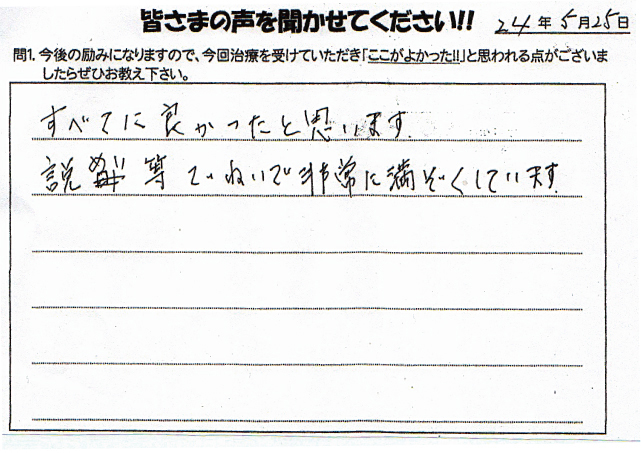 皆さまの声を聞かせてください!! 24年5月25日
問1. 今後の励みになりますので、今回治療を受けていただき「ここがよかった!!」と思われる点がございま
したらぜひお教え下さい。
すべてに良かったと思います.
説 等ていねいで非常に満ぞくしています.